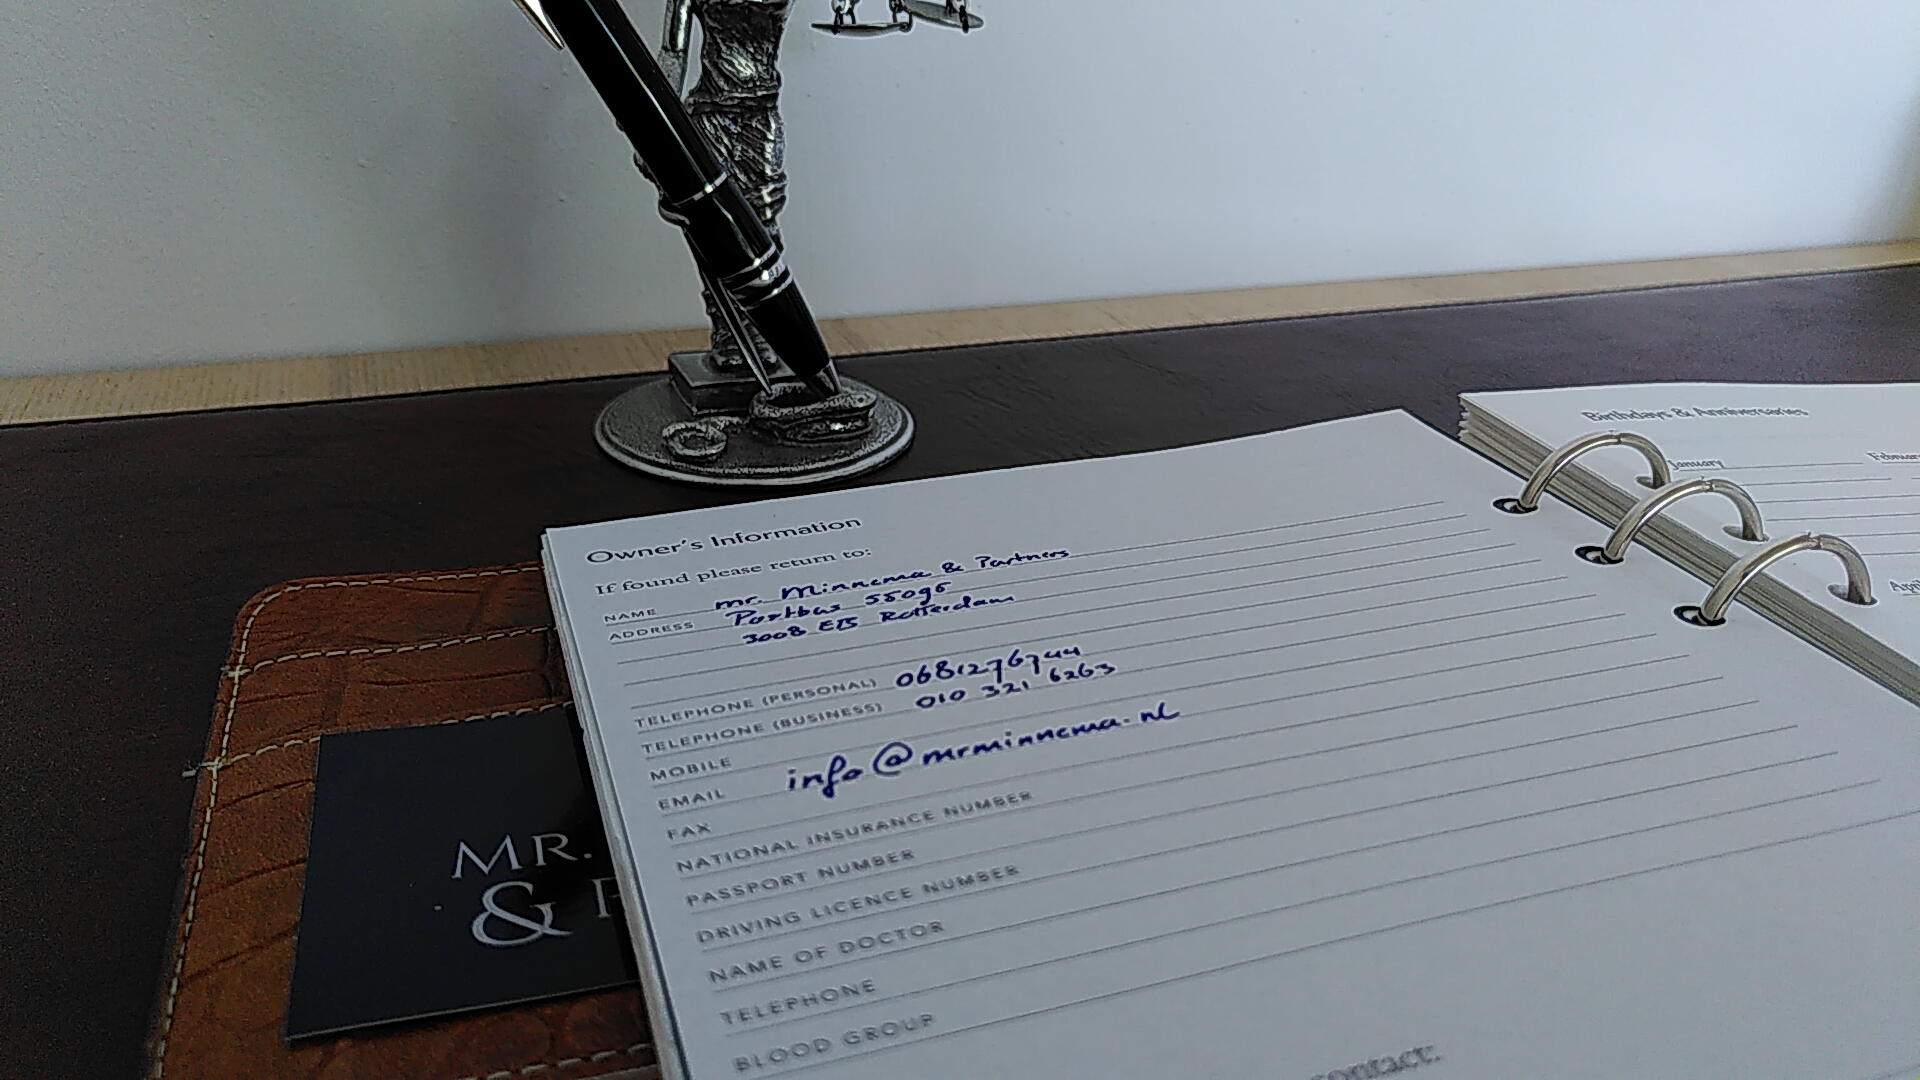 Owner's Information
If found please return to:
NAME mr. Minnema & Partners
ADDRESS Postbus 55096
3008 EB Rotterdam
TELEPHONE (PERSONAL) 0681276744
TELEPHONE (BUSINESS) 010 321 6263
MOBILE
EMAIL info@mrminnema.nl
FAX
NATIONAL INSURANCE NUMBER
PASSPORT NUMBER
DRIVING LICENCE NUMBER
NAME OF DOCTOR
TELEPHONE
BLOOD GROUP
contact:
Birthdays & Anniversaries
January
MR.
&